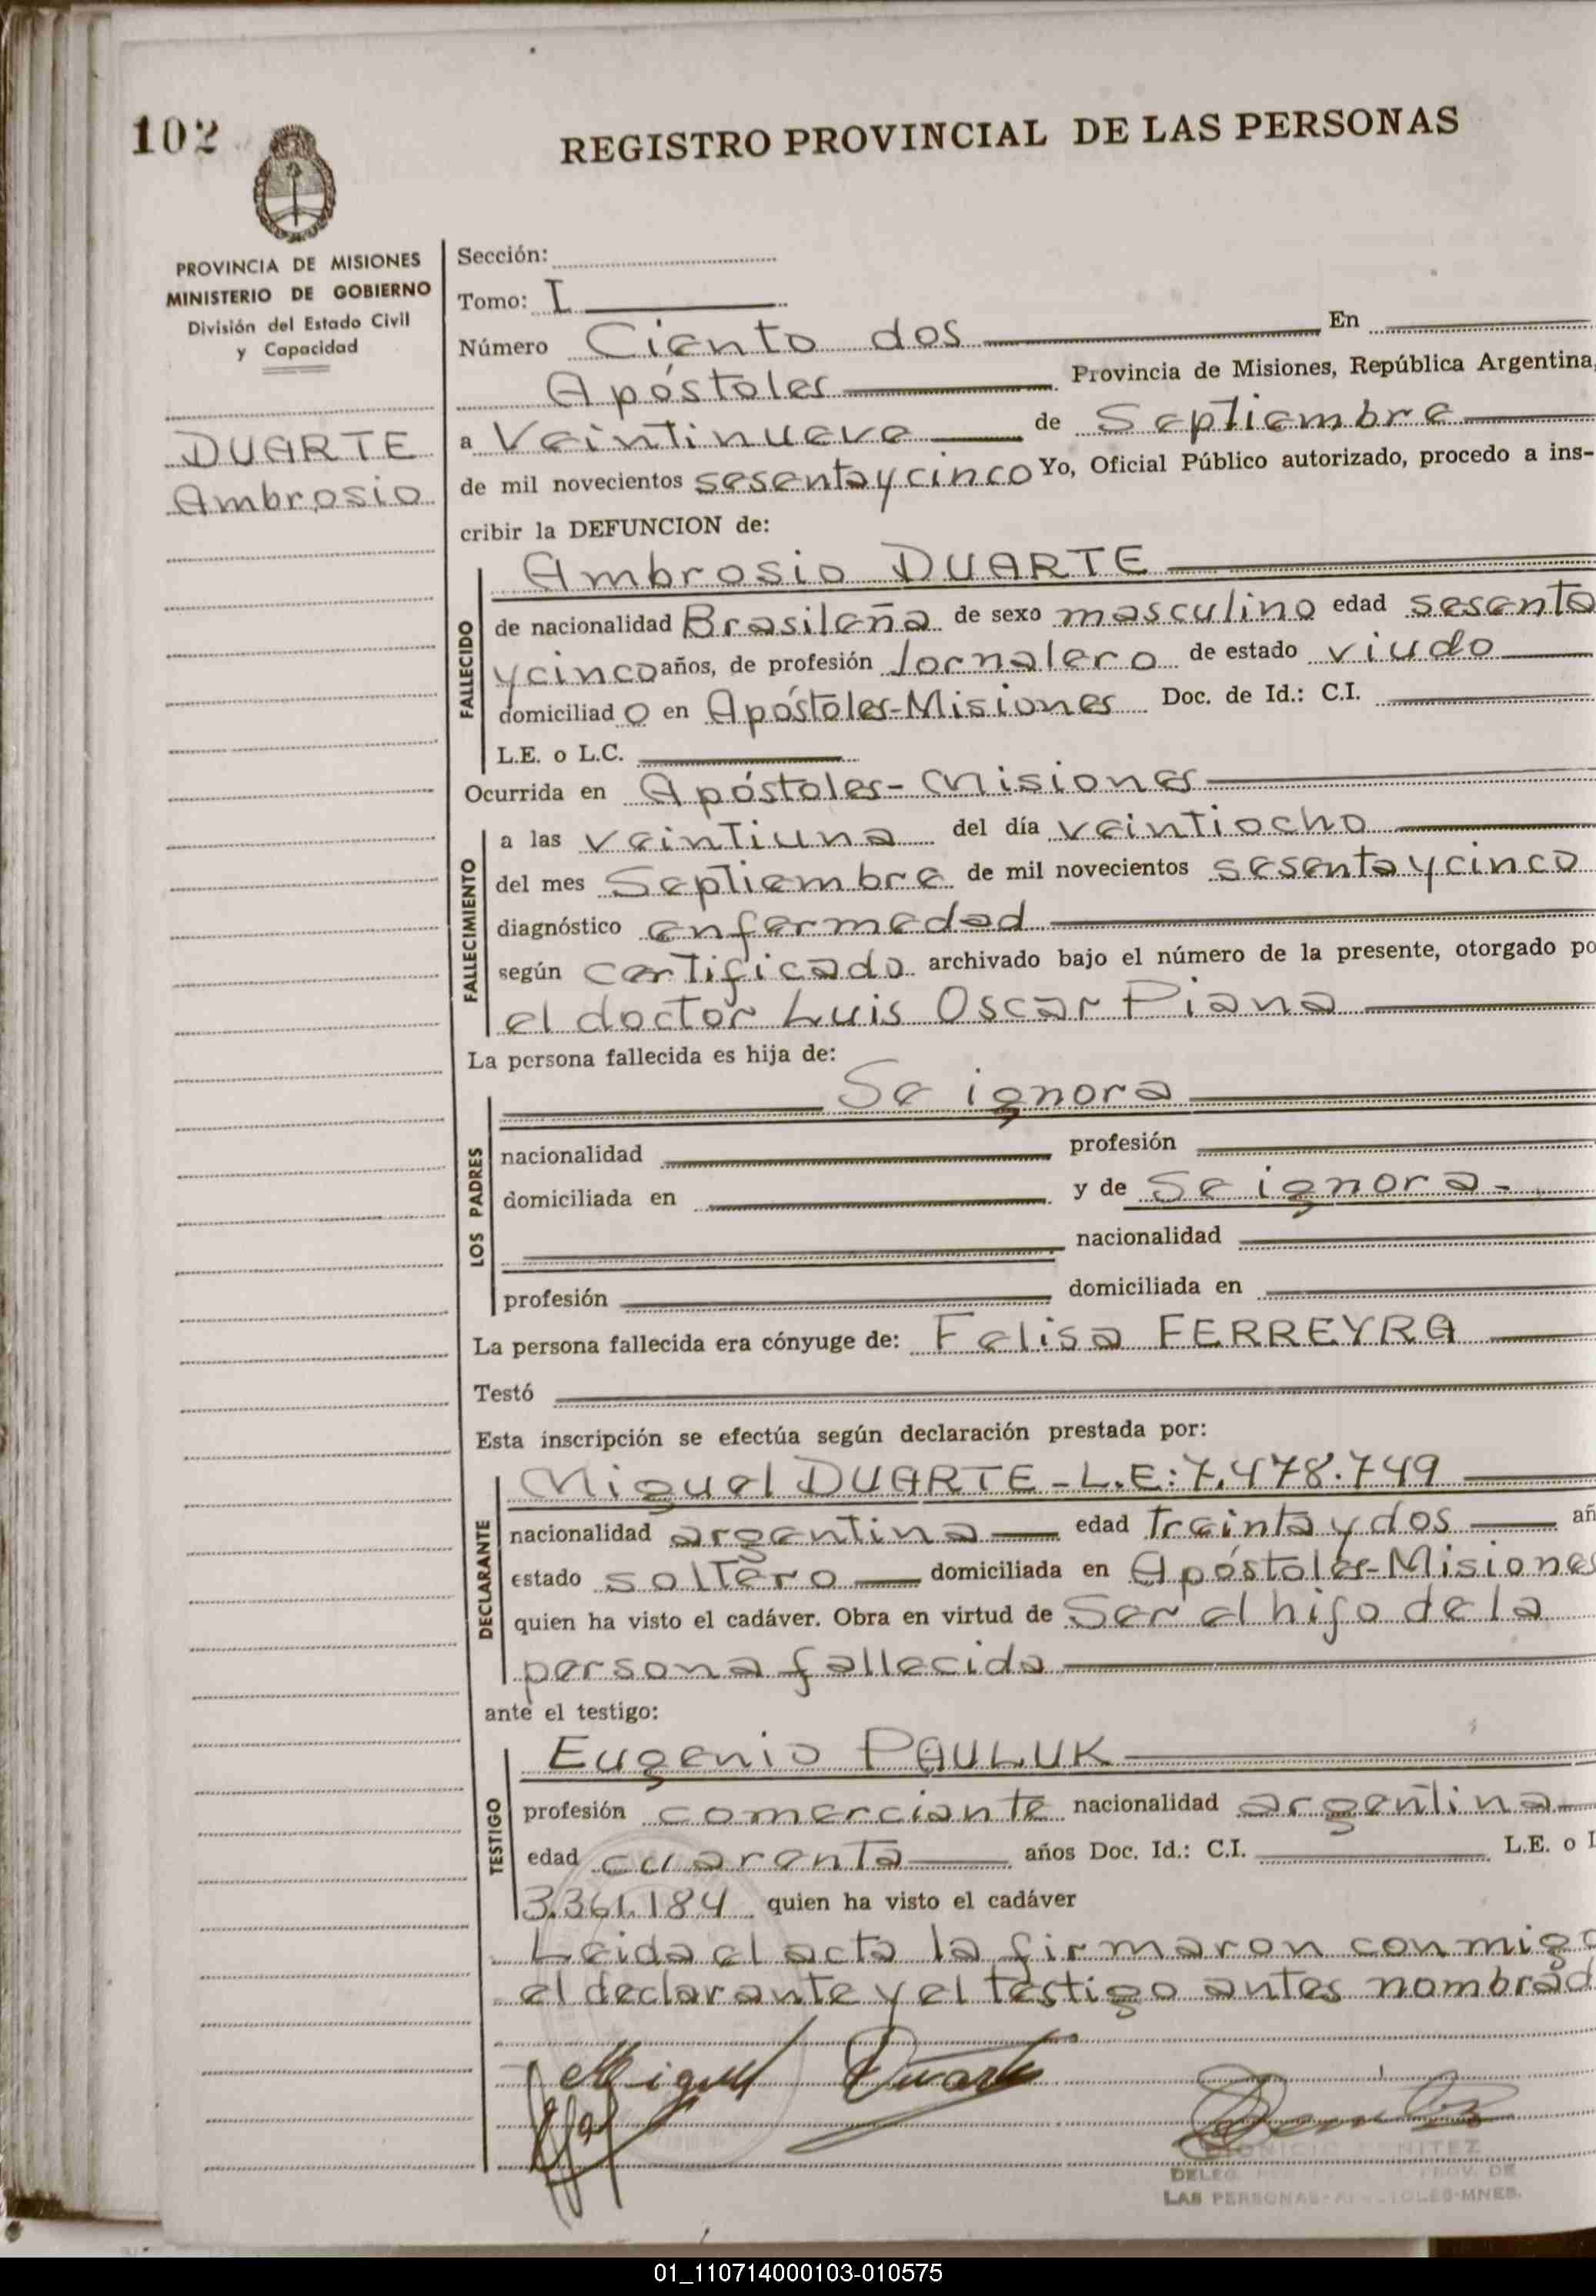 102
REGISTRO PROVINCIAL DE LAS PERSONAS
PROVINCIA DE MISIONES
MINISTERIO DE GOBIERNO
División del Estado Civil
y Capacidad
DUARTE
Ambrosio
Sección:
Tomo: I
Número Ciento dos En
Apóstoles Provincia de Misiones, República Argentina,
a Veintinueve de Septiembre
de mil novecientos sesenta y cinco Yo, Oficial Público autorizado, procedo a ins-
cribir la DEFUNCION de:
FALLECIDO
Ambrosio DUARTE
de nacionalidad Brasileña de sexo masculino edad sesenta
y cinco años, de profesión Jornalero de estado viudo
domiciliado en Apóstoles-Misiones Doc. de Id.: C.I.
L.E. o L.C.
Ocurrida en Apóstoles-Misiones
FALLECIMIENTO
a las veintiuna del día veintiocho
del mes Septiembre de mil novecientos sesenta y cinco
diagnóstico enfermedad
según certificado archivado bajo el número de la presente, otorgado po
el doctor Luis Oscar Piana
La persona fallecida es hija de:
LOS PADRES
Se ignora
nacionalidad profesión
domiciliada en y de Se ignora-
nacionalidad
profesión domiciliada en
La persona fallecida era cónyuge de: Felisa FERREYRA
Testó
Esta inscripción se efectúa según declaración prestada por:
DECLARANTE
Miguel DUARTE-L.E:7.478.749
nacionalidad argentina edad treinta y dos añ
estado soltero domiciliada en Apóstoles-Misiones
quien ha visto el cadáver. Obra en virtud de Ser el hijo de la
persona fallecida
ante el testigo:
TESTIGO
Eugenio PAULUK
profesión comerciante nacionalidad argentina
edad cuarenta años Doc. Id.: C.I. L.E. o L
3.361.184 quien ha visto el cadáver
Leida el acta la firmaron conmigo
el declarante y el testigo antes nombrad
Miguel Duarte
BENITEZ
PROV. DE
LAS PERSONAS-APOSTOLES-MNES.
01_110714000103-010575